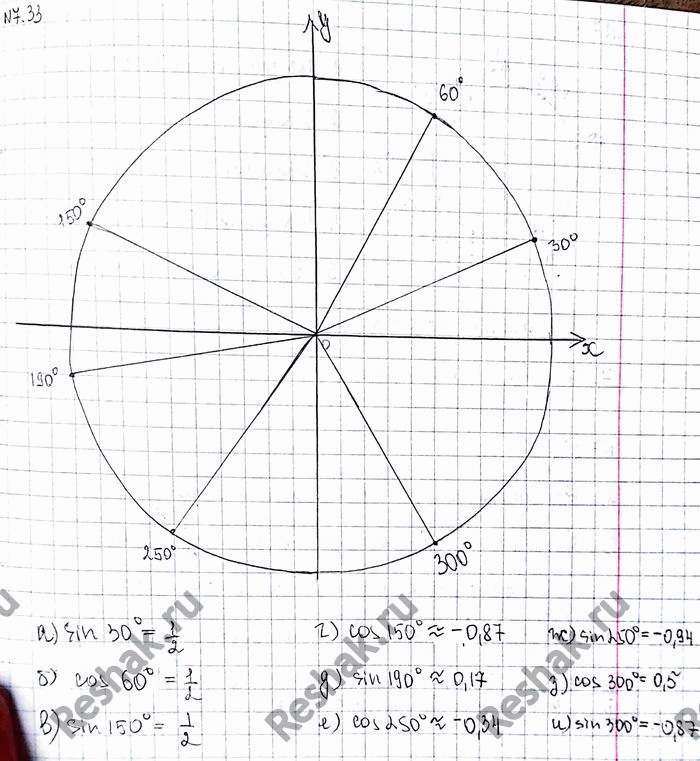 N7.33
y
60°
150°
30°
0
x
190°
250°
300°
а) sin 30° = 1/2
г) cos 150° ≈ -0,87
ж) sin 250° = -0,94
б) cos 60° = 1/2
д) sin 190° ≈ 0,17
з) cos 300° = 0,5
в) sin 150° = 1/2
е) cos 250° ≈ -0,34
и) sin 300° = -0,87
Reshak.ru
Reshak.ru
Reshak.ru